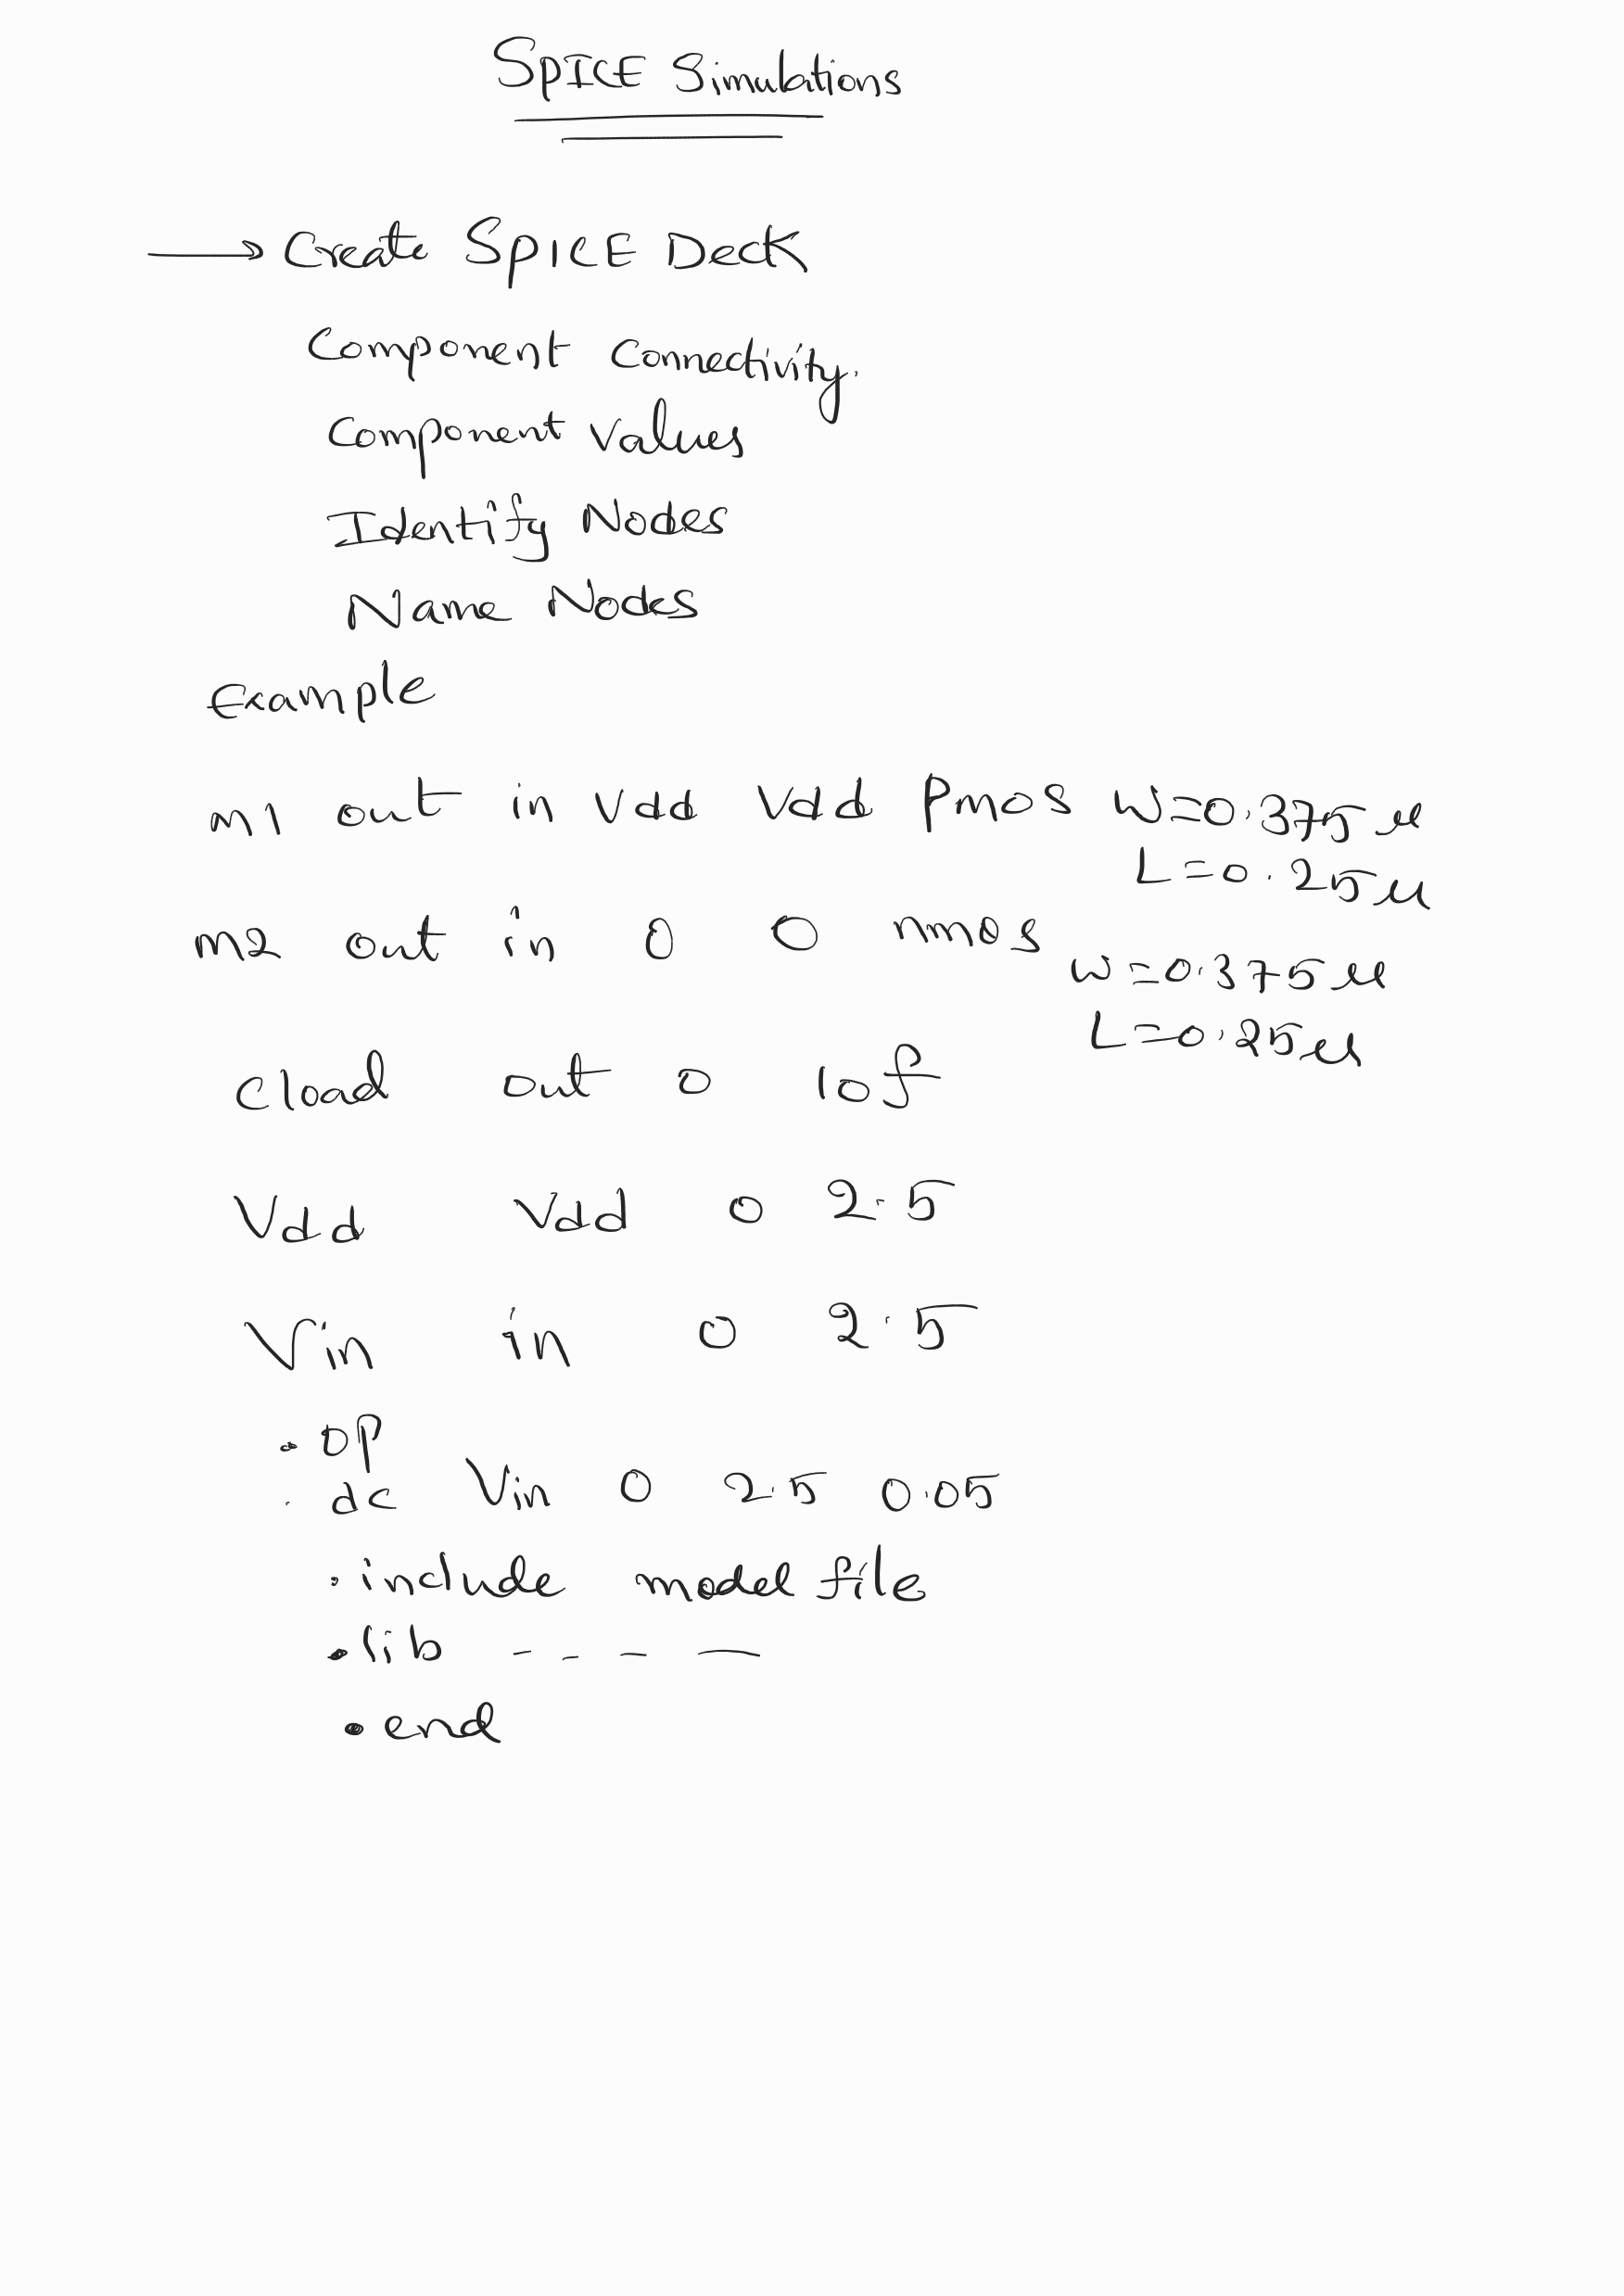 SPICE Simulations
→ Create SPICE Deck
Component Connectivity.
Component Values
Identify Nodes
Name Nodes
Example
m1 out in Vdd Vdd Pmos W=0.375μ
L=0.25μ
m2 out in 0 0 nmos
W=0.375μ
L=0.25μ
cload out 0 10f
Vdd Vdd 0 2.5
Vin in 0 2.5
.op
.dc Vin 0 2.5 0.05
.include model file
.lib - - - —
.end